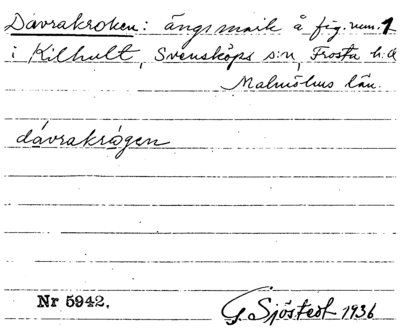 Davrakroken: ängsmark å fig. num. 1
i Kilhult, Svensköps s:n, Frosta h:d
Malmöhus län.
dávrakrågen
Nr 5942.
G. Sjöstedt 1936